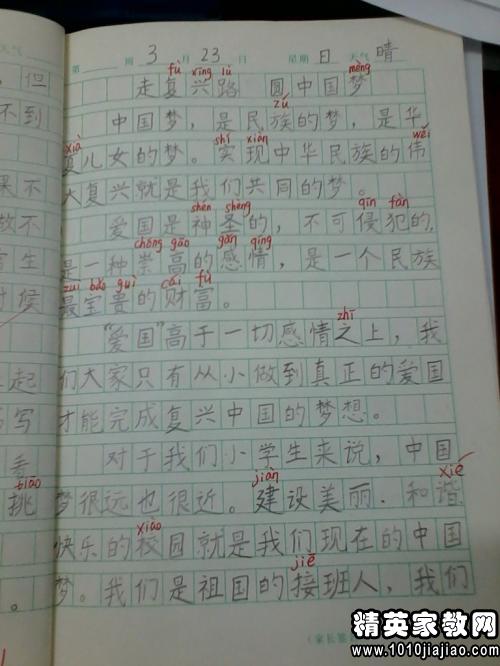 天气
，但
不到
果不
时候
起
写
看
tiāo
挑
。
第 周 3 月 23 日 星期 日 天气 晴
fù xīng lù mèng
走复兴路 圆中国梦
zú
中国梦，是民族的梦，是华
xià shí xiàn wěi
夏儿女的梦。实现中华民族的伟
大复兴就是我们共同的梦。
shén shèng qīn fàn
爱国是神圣的，不可侵犯的，
chóng gāo gǎn qíng
是一种崇高的感情，是一个民族
zuì bǎo guì cái fù
最宝贵的财富。
zhī
“爱国”高于一切感情之上，我
们大家只有从小做到真正的爱国
才能完成复兴中国的梦想。
对于我们小学生来说，中国
jiàn xié
梦很远也很近。建设美丽、和谐
xiào
快乐的校园就是我们现在的中国
jiē
梦。我们是祖国的接班人，我们
(家长签
精英家教网
www.1010jiajiao.com